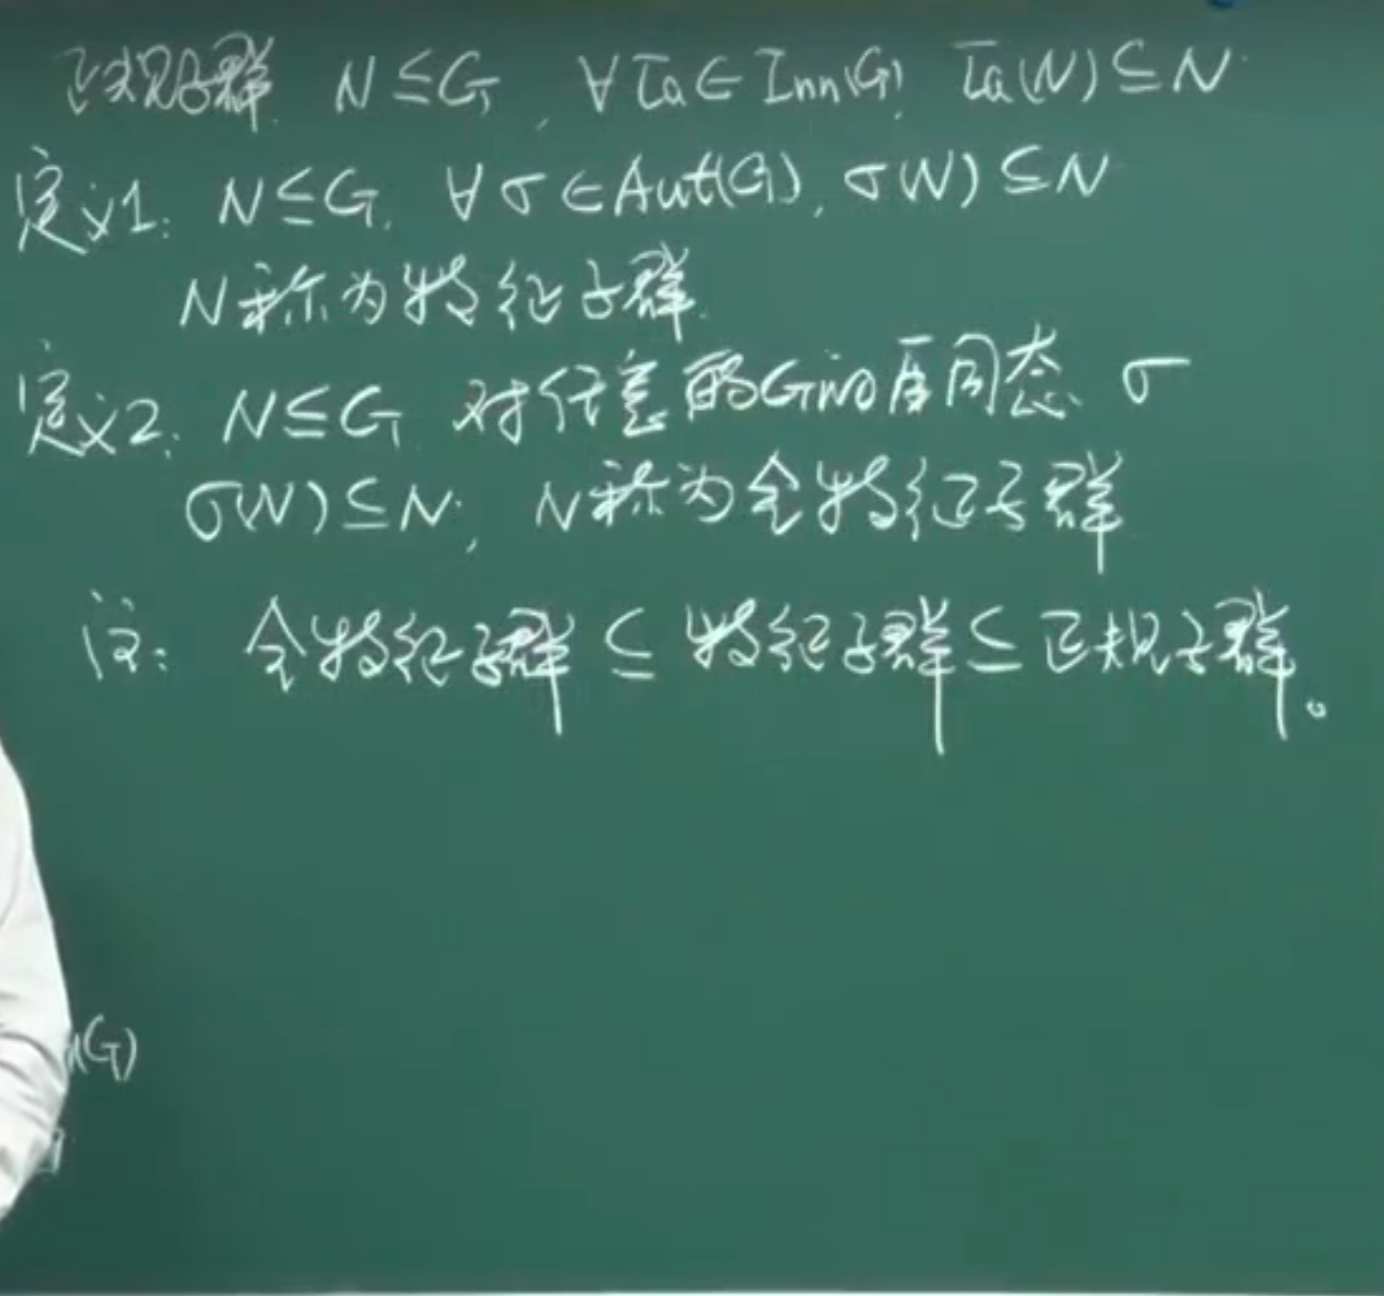 正规子群 N≤G, ∀τa∈Inn(G) τa(N)⊆N.
定义1: N≤G, ∀σ∈Aut(G), σ(N)⊆N
N称为特征子群.
定义2: N≤G 对任意的G的自同态 σ
σ(N)⊆N, N称为全特征子群
注: 全特征子群 ⊆ 特征子群 ⊆ 正规子群。
(G)